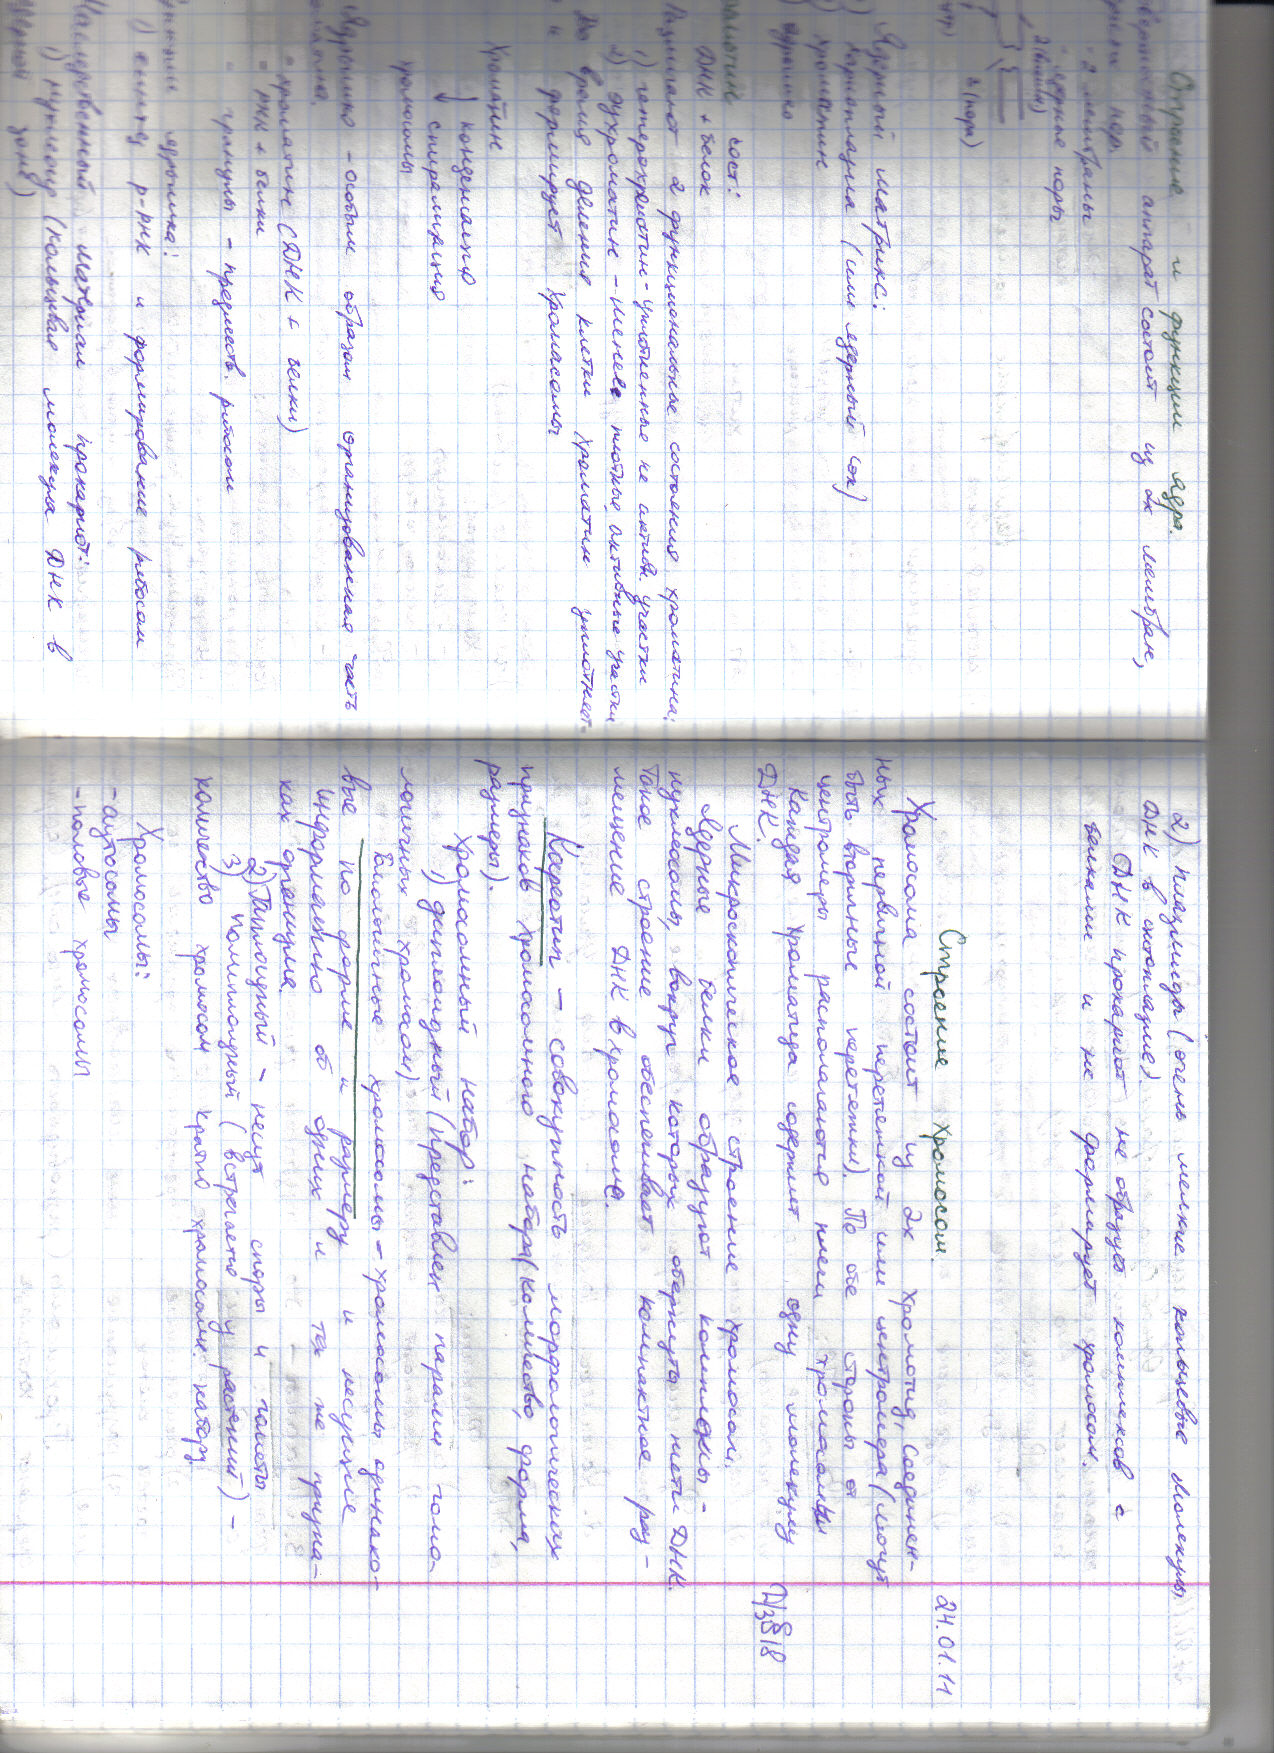 Строение и функции ядра.
аппарат состоит из 2х мембран,
- 2 мембраны
- ядерные поры
3 (пора)
Ядерный матрикс:
кариоплазма (или ядерный сок)
хроматин
ядрышко
сост:
ДНК + белок
Различают 2 функциональные состояния хроматина:
1) гетерохроматин - уплотненные не активн. участки
2) эухроматин - менее плотные, активные участки
Во время деления клетки хроматин уплотняет-
и формирует хромасомы
Хроматин
↓ конденсация
↓ спирализация
хромосомы
Ядрышко - особым образом организованная часть
- хроматин (ДНК + белки)
- РНК + белки
- гранулы - предшеств. рибосом
ядрышка:
1) синтез р-РНК и формирование рибосом
Наследственный материал прокариот:
1) нуклеоид (кольцевая молекула ДНК в
зоне)
2) плазмиды (очень мелкие кольцевые молекулы
ДНК в цитоплазме).
ДНК прокариот не образует комплексов с
белками и не формирует хромосом.
24.01.11
Строение хромосом.
Хромосома состоит из 2х хромотид, соединен-
ных первичной перетяжкой или центромера (могут
быть вторичные перетяжки). По обе стороны от
центромеры располагаются плечи хромасомы
Каждая хроматида содержит одну молекулу
ДНК.
Д/з §18
Микроскопическое строение хромосом:
Ядерные белки образуют комплексы -
нуклеосомы, вокруг которых обернуты нити ДНК.
Такое строение обеспечивает компактное раз-
мещение ДНК в хромосоме.
Кариотип - совокупность морфологических
признаков хромосомного набора (количество, форма,
размеры).
Хромосомный набор:
1) диплоидный (представлен парами гомо-
логичных хромосом)
Гомологичные хромосомы - хромосомы одинако-
вые по форме и размеру и несущие
информацию об одних и тех же призна-
ках организма.
2) Гаплоидный - несут споры и гаметы
3) Полиплоидный (встречается у растений) -
количество хромосом кратно хромосомн. набору.
Хромосомы:
- аутосомы
- половые хромосомы